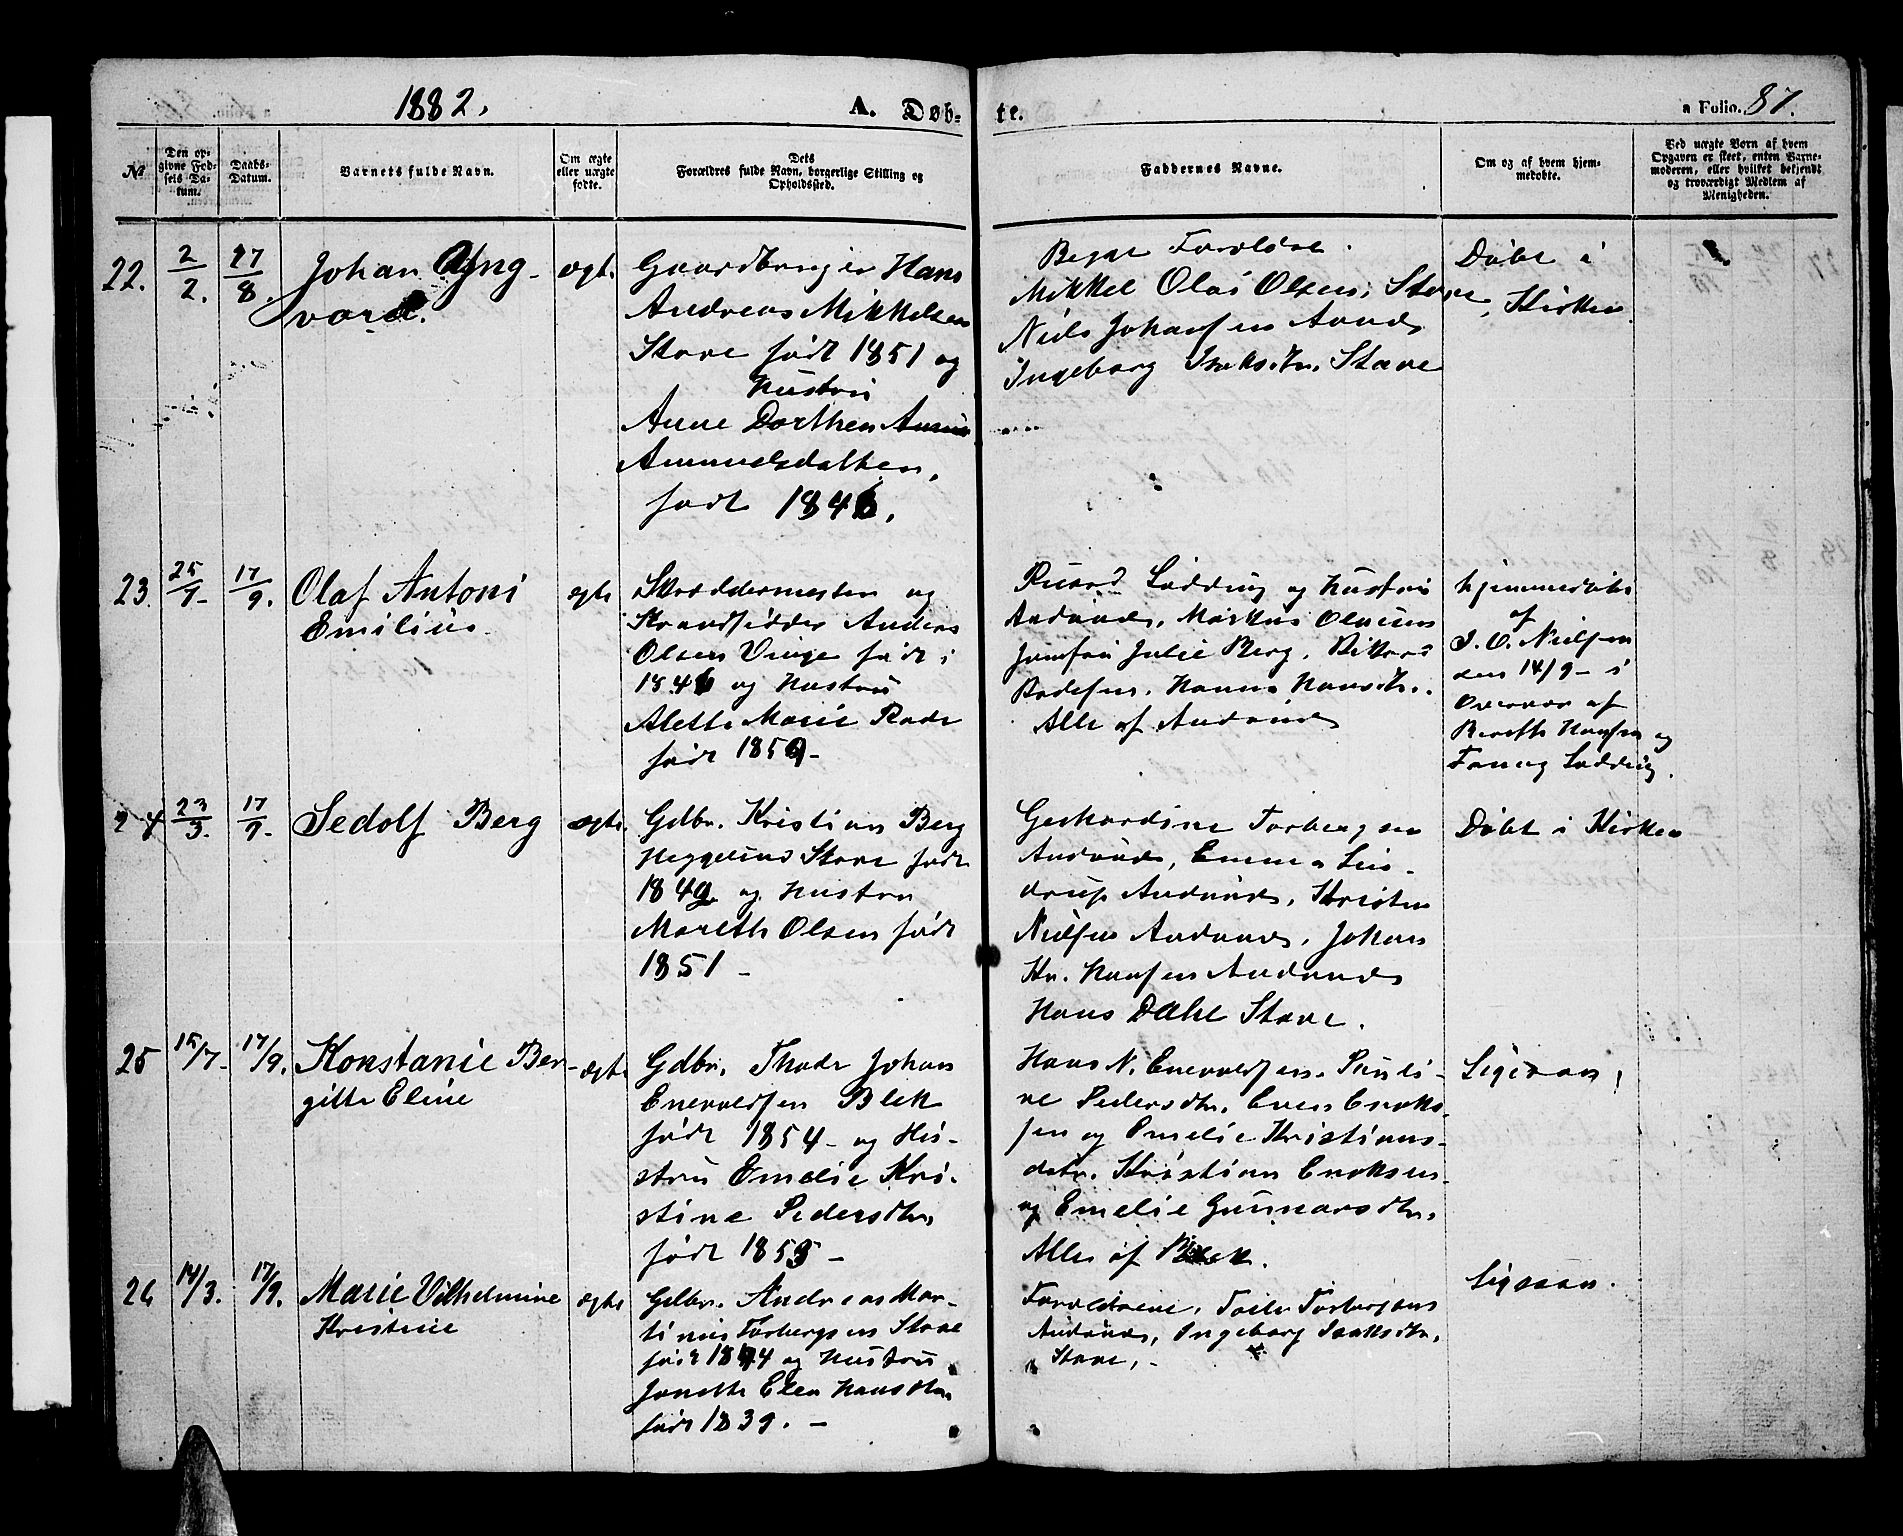 1882.
A. Døb-
te.
a Folio. 87.
№
Den op-
givne Fød-
sels Da-
tum.
Daabs-
Datum.
Barnets fulde Navn.
Om ægte
eller uægte
fødte.
Dets
Forældres fulde Navn, borgerlige Stilling og
Opholdssted.
Faddernes Navne.
Om og af hvem hjem-
medøbte.
Ved uægte Børn af hvem
Opgaven er skeet, enten Barne-
moderen, eller hvilket bekjendt
og troværdigt Medlem af
Menigheden.
22.
2/2.
27/8.
Johan Ang-
vard.
ægt.
Gaardbruger Hans
Andreas Mikkelsen
Stave født 1851 og
Hustru
Anne Dorthea
Amundsdatter,
født 1846.
Begge Forældre.
Mikkel Olai Olsen, Stave
Niels Johansen
Ingeborg Isaksdtr. Stave
Døbt i
Kirken
23.
25/7-
17/9.
Olaf Antoni
Emilius.
ægte
Skræddermester og
Strandsidder Anders
Olsen Vinje født i
1846 og Hustru
Alette Marie Rode
født 1859-
Lødding og Hustru
Andenæs, Markus
Jomfru Julie Berg, Rikard
Hanna Hansdtr.
Alle af Andenæs
hjemmedøbt
af
J. O. Nielsen
den 14/9- i
Overvær af
Bereth Hansen og
Fanny Lødding.
24
23/3.
17/9.
Sedolf Berg
ægte.
Gdbr. Kristian Berg
Heggelund Stave født
1849 og Hustru
Mareth Olsen født
1851 -
Gerhardine Torbergsen
Andenæs, Emma Lin-
drup Andenæs, Kristen
Nielsen Andenæs, Johan
Kr. Hansen Andenæs
Hans Dahl Stave.
Døbt i Kirken
25
15/7-
17/9.
Konstanse Ber-
gitte Eline
ægte
Gdbr. Thode Johan
Enevoldsen Blek
født 1854- og Hu-
stru Emelie Kri-
stine Pedersdtr.
født 1855 -
Hans N. Enevoldsen. Pauli-
ne Pedersdtr. Even Enoks-
sen og Emelie Kristians-
datr. Kristian Enoksen
og Emelie Gunnarsdtr.
Alle af Blek.
Ligesaa.
26
14/3.
17/9.
Marie Vilhelmine
Kristine
ægte
Gdbr. Andreas Mar-
tinus Torbergsen Stave
født 1844 og Hustru
Janette Elen Hansdtr.
født 1839. -
Forældrene, Torbergsen
Andenæs, Ingeborg Isaksdtr.
Stave. -
Ligesaa.